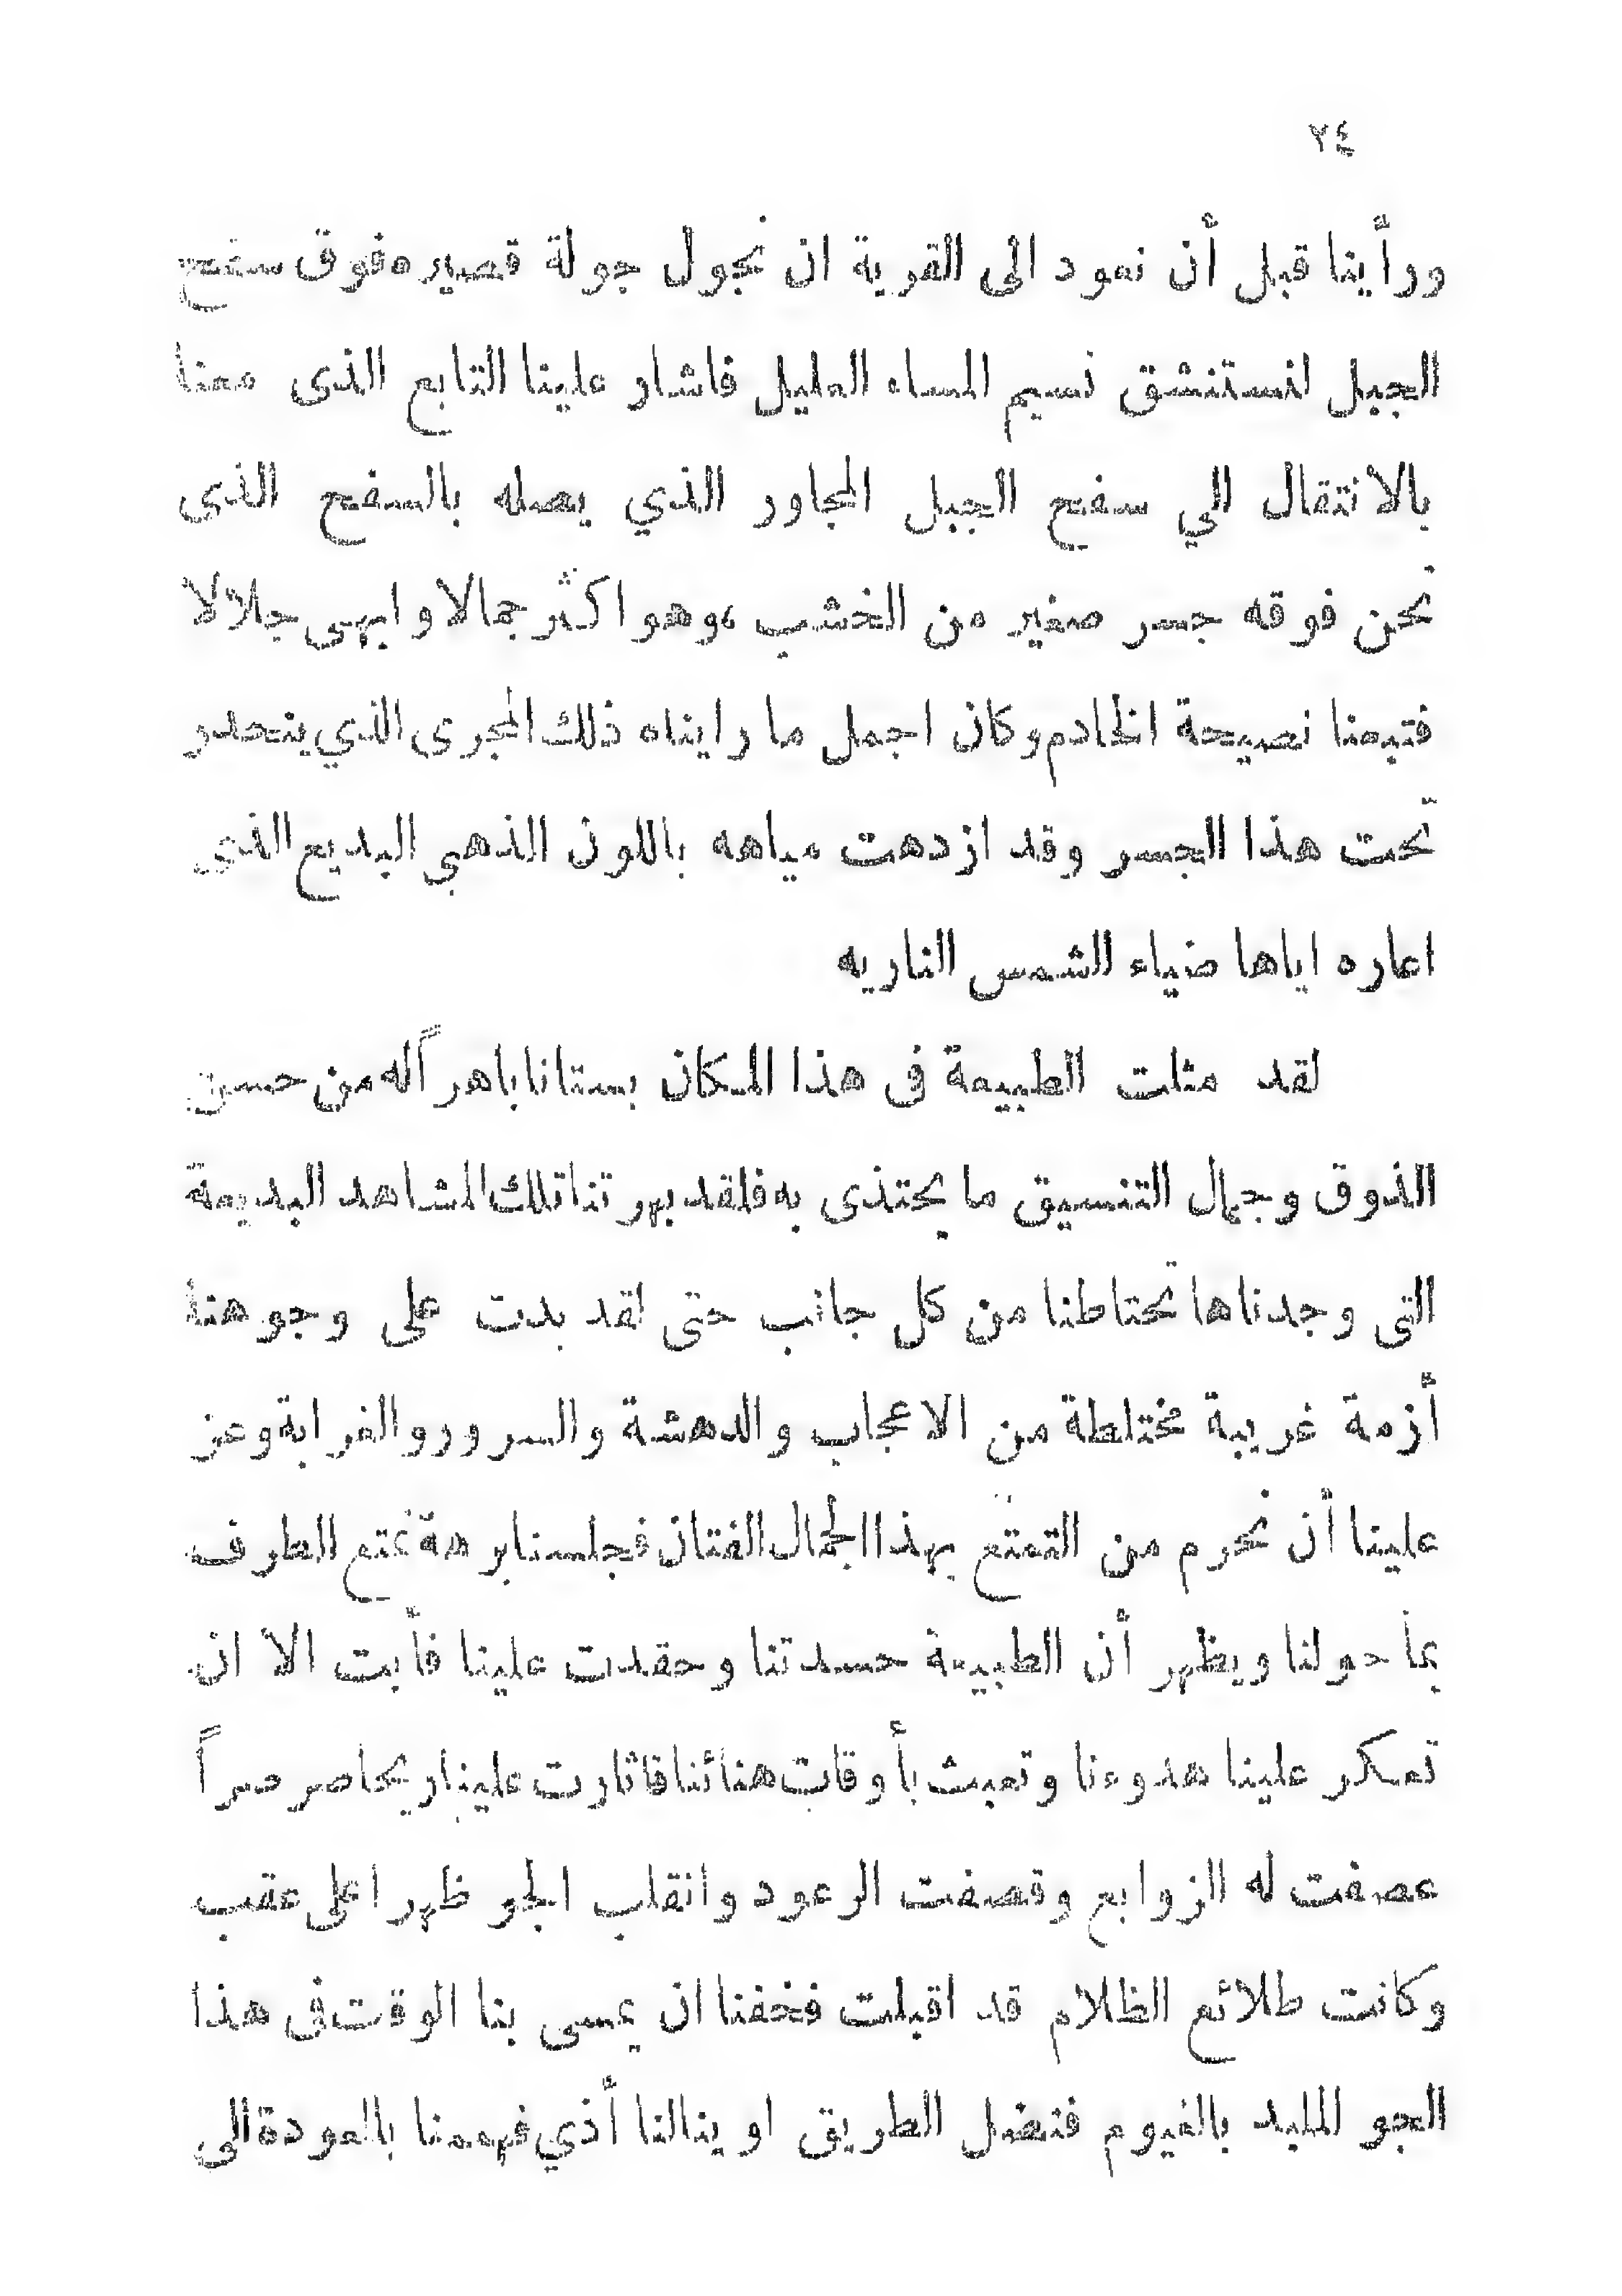 ٢٤
ورأينا قبل أن نعود الى القرية ان نجول جولة قصيره فوق سفح
الجبل لنستنشق نسيم المساء العليل فاشار علينا التابع الذى معنا
بالانتقال الي سفح الجبل المجاور الذي يصله بالسفح الذى
نحن فوقه جسر صغير من الخشب ،وهو اكثر جمالا وابهى جلالا
فتبعنا نصيحة الخادم وكان اجمل ما رايناه ذلك المجرى الذي ينحدر
تحت هذا الجسر وقد ازدهت مياهه باللون الذهبي البديع الذى
اعاره اياها ضياء الشمس الناريه
لقد مثلت الطبيعة فى هذا المكان بستانا باهراً له من حسن
الذوق وجمال التنسيق ما يحتذى به فلقد بهرتنا تلك المشاهد البديعة
التى وجدناها تحتاطنا من كل جانب حتى لقد بدت على وجوهنا
أزمة غريبة مختلطة من الاعجاب والدهشة والسرور والغرابة وعز
علينا أن نحرم من التمتع بهذا الجمال الفتان فجلسنا برهة نمتع الطرف
بما حولنا ويظهر أن الطبيعة حسدتنا وحقدت علينا فأبت الا ان
تعكر علينا هدوءنا وتعبث بأوقات هنائنا فاثارت علينا ريحا صرصراً
عصفت له الزوابع وقصفت الرعود وانقلب الجو ظهرا على عقب
وكانت طلائع الظلام قد اقبلت فخفنا ان يمسى بنا الوقت فى هذا
الجو الملبد بالغيوم فنضل الطريق او ينالنا أذي فهممنا بالعودة الى